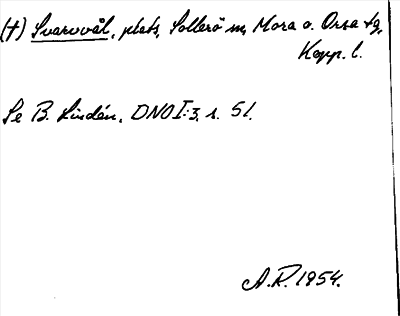 (†) Svarvvål, plats, Sollerö sn, Mora o. Orsa tg,
Kopp. l.
Se B. Lindén, DNO I:3, s. 51.
A.R. 1954.